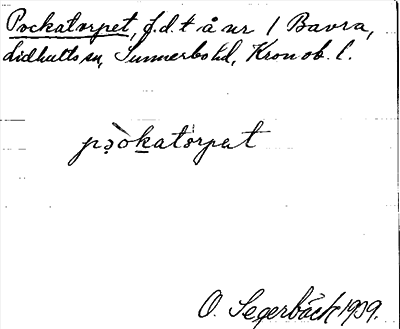 Pockatorpet, f.d.t å nr 1 Bavra,
Lidhults sn, Sunnerbo hd, Kronob. l.
pǫ̀okatorpet
O. Segerbäck 1939.